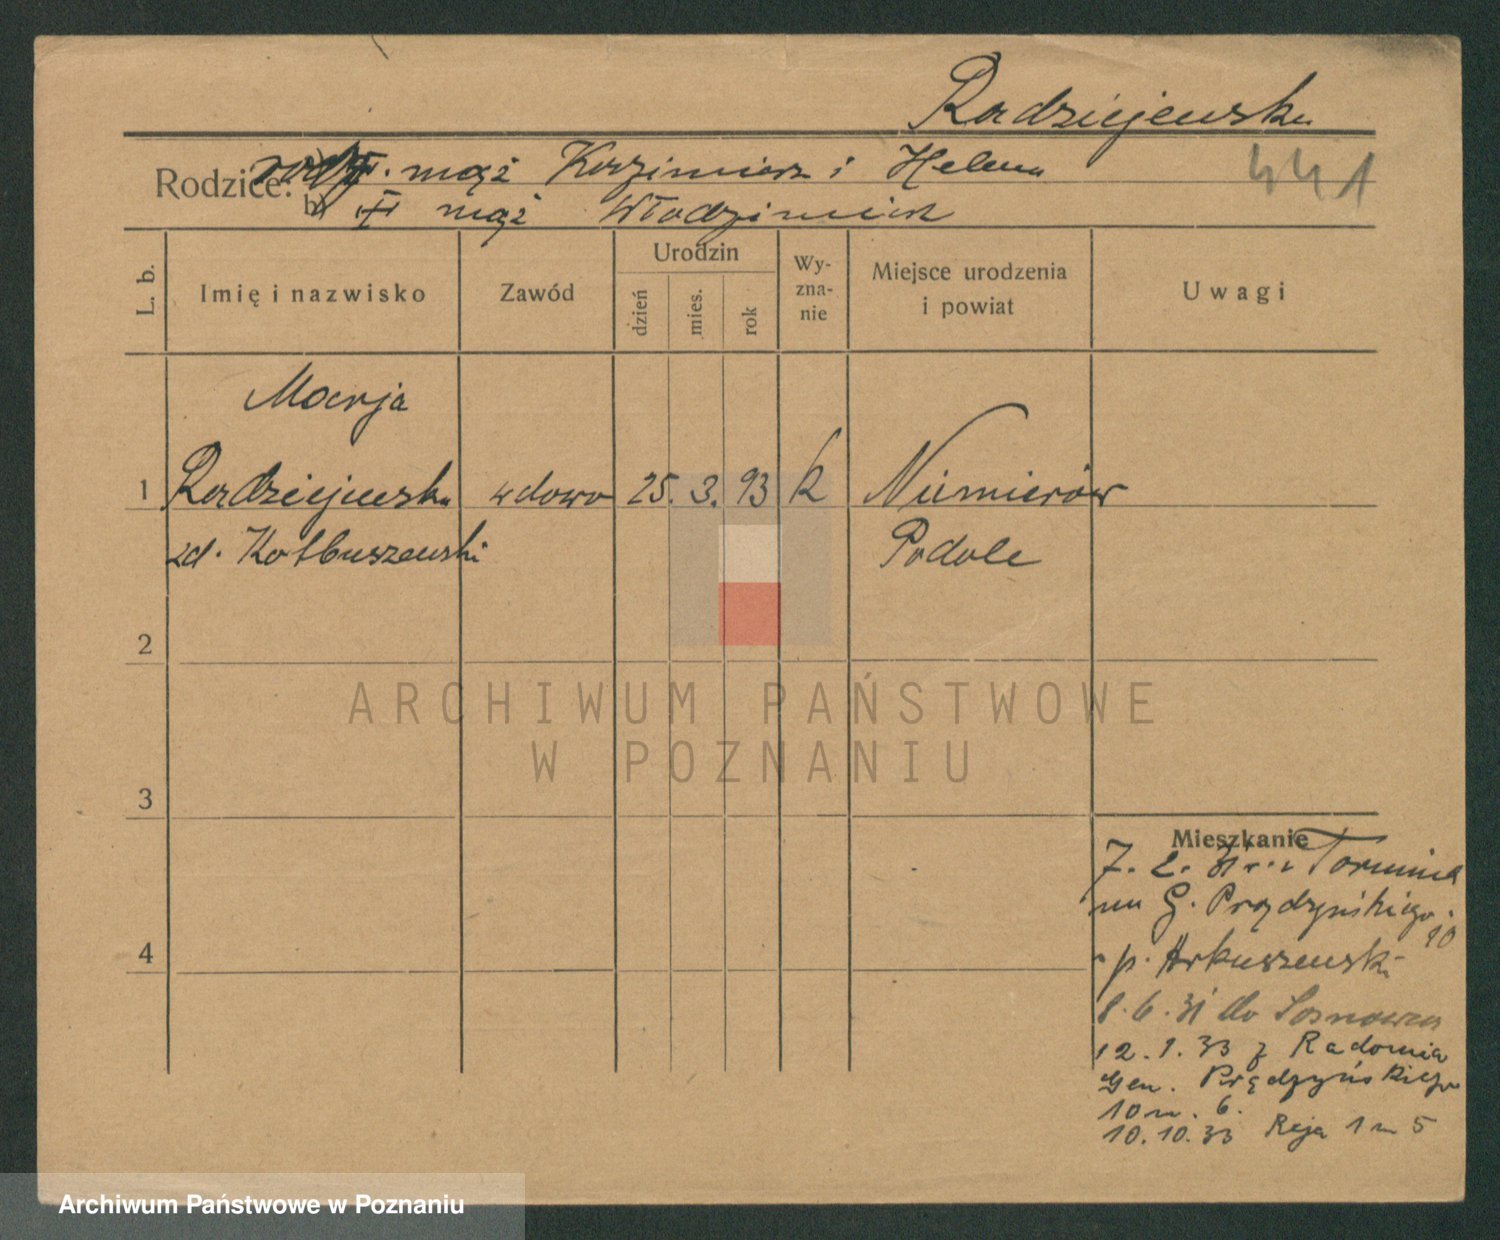 Radziejewska
441
Rodzice: rodz. I. mąż Kazimierz i Helena
b) II mąż Włodzimierz
L. b.
Imię i nazwisko
Zawód
Urodzin
dzień
mies.
rok
Wy-
zna-
nie
Miejsce urodzenia
i powiat
Uwagi
Marja
1 Radziejewska wdowa 25. 3. 93 k Niemierów
zd. Kolbuszewski Podole
2
ARCHIWUM PAŃSTWOWE
W POZNANIU
3
Mieszkanie
7. 2. 31 r. z Torunia
na G. Prądzyńskiego
10
p. Arkuszewski
8. 6. 31 do Sosnowca
4
12. 1. 33 z Radomia
Gen. Prądzyńskiego
10 m. 6.
10.10.33 Reja 1 m 5
Archiwum Państwowe w Poznaniu